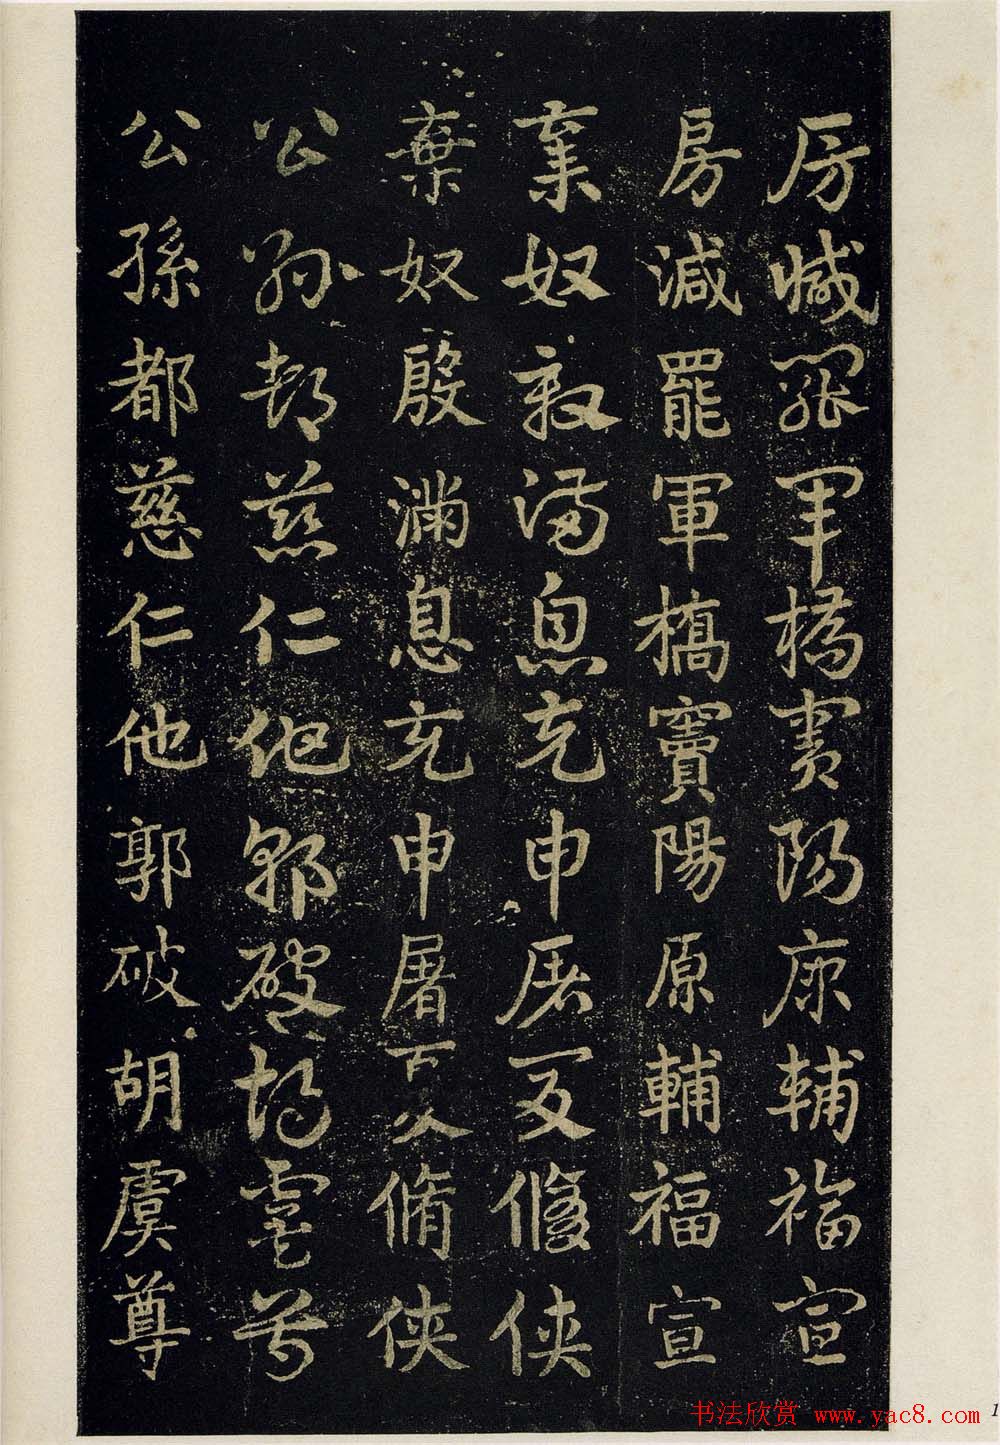 房減罷軍橋竇陽原輔福宣
房減罷軍橋竇陽原輔福宣
棄奴殷滿息充申屠夏脩俠
棄奴殷滿息充申屠夏脩俠
公孫都慈仁他郭破胡虞尊
公孫都慈仁他郭破胡虞尊
书法欣赏 www.yac8.com
1